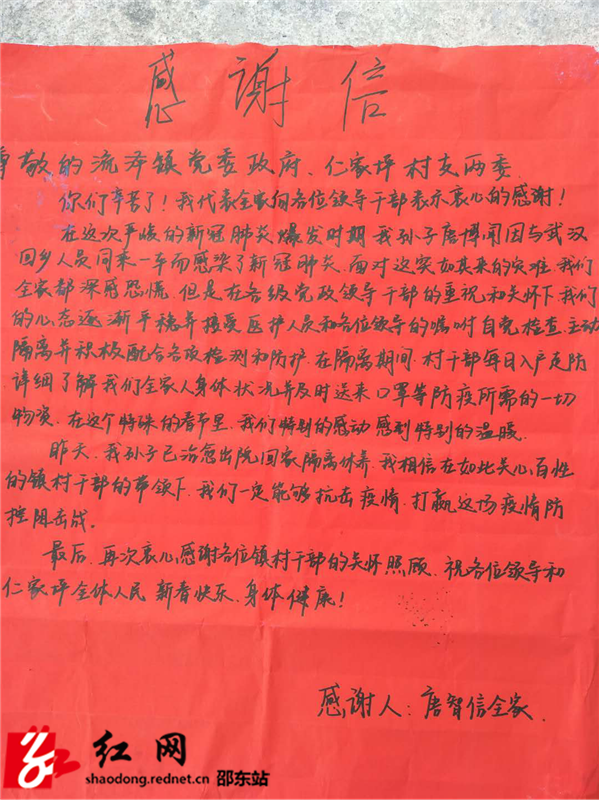 感谢信
尊敬的流泽镇党委政府、仁家坪村支两委
你们辛苦了！我代表全家向各位领导干部表示衷心的感谢！
在这次严峻的新冠肺炎爆发时期 我孙子唐博闻因与武汉
回乡人员同乘一车而感染了新冠肺炎.面对这突如其来的灾难.我们
全家都深感恐慌.但是在各级党政领导干部的重视和关怀下.我们
的心态逐渐平稳并接受医护人员和各位领导的嘱咐自觉检查.主动
隔离并积极配合各项检测和防护.在隔离期间.村干部每日入户走访
详细了解我们全家人身体状况并及时送来口罩等防疫所需的一切
物资.在这个特殊的春节里.我们特别的感动感到特别的温暖.
昨天.我孙子已治愈出院回家隔离休养.我相信在如此关心百姓
的镇村干部的带领下.我们一定能够抗击疫情.打赢这场疫情防
控阻击战.
最后.再次衷心感谢各位镇村干部的关怀照顾.祝各位领导和
仁家坪全体人民 新春快乐.身体健康！
感谢人：唐智信全家.
红网
shaodong.rednet.cn 邵东站